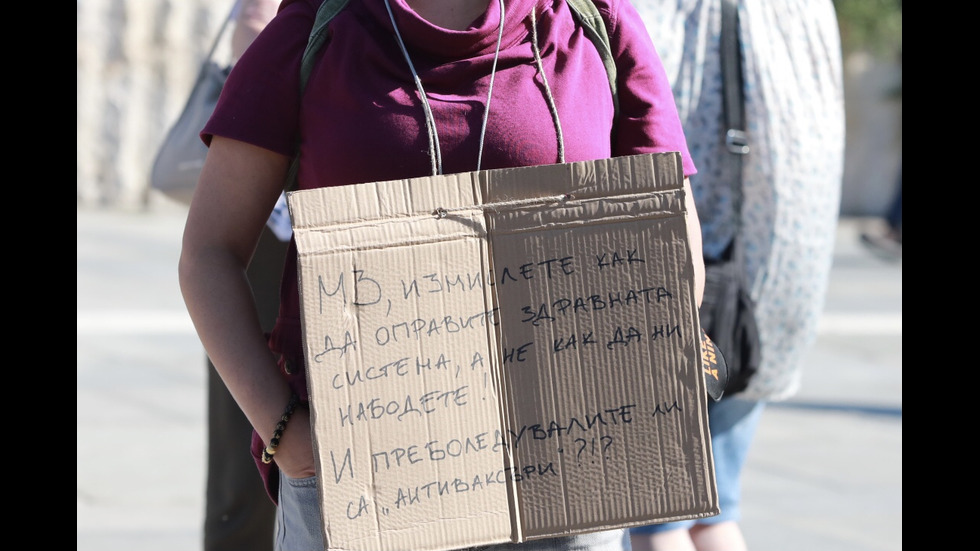 МЗ, ИЗМИСЛЕТЕ КАК
ДА ОПРАВИТЕ ЗДРАВНАТА
СИСТЕМА, А НЕ КАК ДА НИ
НАБОДЕТЕ!
И ПРЕБОЛЕДУВАЛИТЕ ЛИ
СА „АНТИВАКСЪРИ"?!?